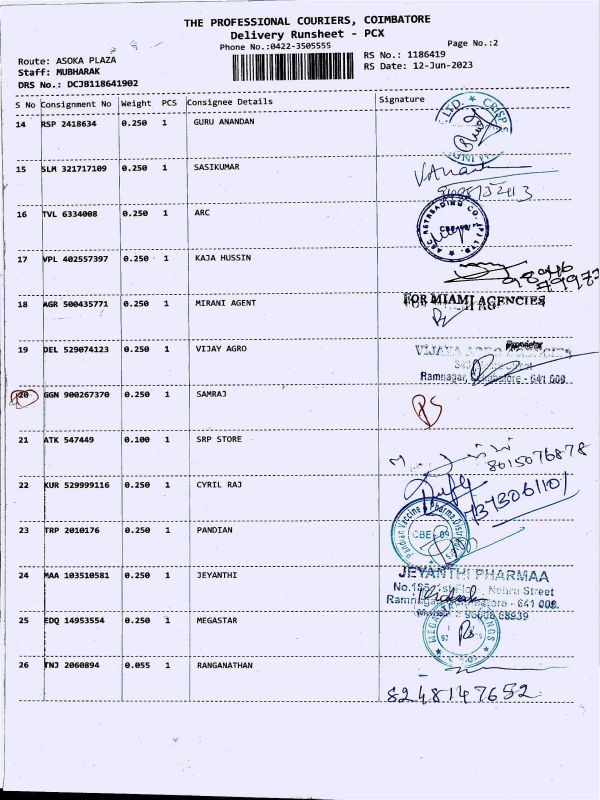 THE PROFESSIONAL COURIERS, COIMBATORE
Delivery Runsheet - PCX
Phone No.:0422-3505555
Page No.:2
Route: ASOKA PLAZA
RS No.: 1186419
Staff: MUBHARAK
RS Date: 12-Jun-2023
DRS No.: DCJB118641902
S No Consignment No Weight PCS Consignee Details Signature
14 RSP 2418634 0.250 1 GURU ANANDAN
15 SLM 321717109 0.250 1 SASIKUMAR
16 TVL 6334008 0.250 1 ARC
17 VPL 402557397 0.250 1 KAJA HUSSIN
18 AGR 500435771 0.250 1 MIRANI AGENT
FOR MIAMI AGENCIES
19 DEL 529074123 0.250 1 VIJAY AGRO
Proprietor
VIJAYA AGRO
Ramnagar, Coimbatore - 641 009.
20 GGN 900267370 0.250 1 SAMRAJ
21 ATK 547449 0.100 1 SRP STORE
8015076878
22 KUR 529999116 0.250 1 CYRIL RAJ
23 TRP 2010176 0.250 1 PANDIAN
Pandian Vaccine & Pharma
CBE-09
24 MAA 103510581 0.250 1 JEYANTHI
JEYANTHI PHARMAA
Nehru Street
Ramnagar, Coimbatore - 641 009.
25 EDQ 14953554 0.250 1 MEGASTAR
26 TNJ 2060894 0.055 1 RANGANATHAN
8248147652